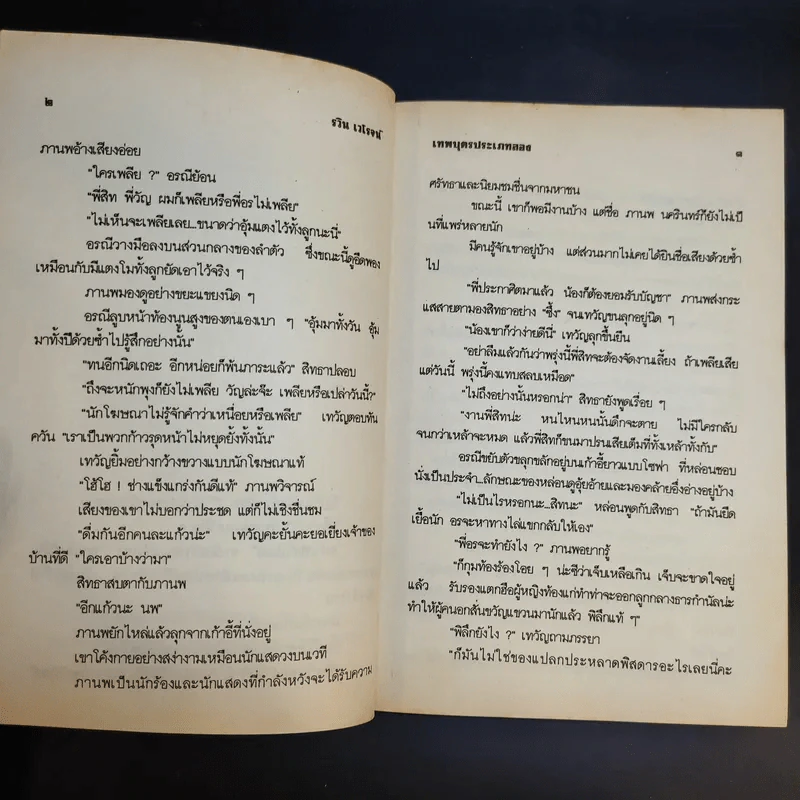 ๒
รวิน เวโรจน์
ภานพอ้างเสียงอ่อย
"ใครเพลีย ?" อรณีย้อน
"พี่สิท พี่วัญ ผมก็เพลียหรือพี่อรไม่เพลีย"
"ไม่เห็นจะเพลียเลย...ขนาดว่าอุ้มแตงไว้ทั้งลูกนะนี่"
อรณีวางมือลงบนส่วนกลางของลำตัว ซึ่งขณะนี้ดูอืดพอง
เหมือนกับมีแตงโมทั้งลูกยัดเอาไว้จริง ๆ
ภานพมองดูอย่างขยะแขยงนิด ๆ
อรณีลูบหน้าท้องนูนสูงของตนเองเบา ๆ "อุ้มมาทั้งวัน อุ้ม
มาทั้งปีด้วยซ้ำไปรู้สึกอย่างนั้น"
"ทนอีกนิดเถอะ อีกหน่อยก็พ้นภาระแล้ว" สิทธาปลอบ
"ถึงจะหนักพุงก็ยังไม่เพลีย วัญล่ะจ๊ะ เพลียหรือเปล่าวันนี้?"
"นักโฆษณาไม่รู้จักคำว่าเหนื่อยหรือเพลีย" เทวัญตอบทัน
ควัน "เราเป็นพวกก้าวรุดหน้าไม่หยุดยั้งทั้งนั้น"
เทวัญยิ้มอย่างกว้างขวางแบบนักโฆษณาแท้
"โฮ้โฮ ! ช่างแข็งแกร่งกันดีแท้" ภานพวิจารณ์
เสียงของเขาไม่บอกว่าประชด แต่ก็ไม่เชิงชื่นชม
"ดื่มกันอีกคนละแก้วน่ะ" เทวัญคะยั้นคะยอเยี่ยงเจ้าของ
บ้านที่ดี "ใครเอาบ้างว่ามา"
สิทธาสบตากับภานพ
"อีกแก้วนะ นพ"
ภานพยักไหล่แล้วลุกจากเก้าอี้ที่นั่งอยู่
เขาโค้งกายอย่างสง่างามเหมือนนักแสดงบนเวที
ภานพเป็นนักร้องและนักแสดงที่กำลังหวังจะได้รับความ
เทพบุตรประเภทสอง
๓
ศรัทธาและนิยมชมชื่นจากมหาชน
ขณะนี้ เขาก็พอมีงานบ้าง แต่ชื่อ ภานพ นครินทร์ก็ยังไม่เป็
นที่แพร่หลายนัก
มีคนรู้จักเขาอยู่บ้าง แต่ส่วนมากไม่เคยได้ยินชื่อเสียงด้วยซ้ำ
ไป
"พี่ประกาศิตมาแล้ว น้องก็ต้องยอมรับบัญชา" ภานพส่งกระ
แสสายตามองสิทธาอย่าง "ซึ้ง" จนเทวัญขนลุกอยู่นิด ๆ
"น้องเขาก็ว่าง่ายดีนี่" เทวัญลุกขึ้นยืน
"อย่าลืมแล้วกันว่าพรุ่งนี้พี่สิทจะต้องจัดงานเลี้ยง ถ้าเพลียเสีย
แต่วันนี้ พรุ่งนี้คงแทบสลบเหมือด"
"ไม่ถึงอย่างนั้นหรอกน่า" สิทธายังพูดเรื่อย ๆ
"งานพี่สิทน่ะ หนไหนหนนั้นดึกจะตาย ไม่มีใครกลับ
จนกว่าเหล้าจะหมด แล้วพี่สิทก็ขนมาปรนเสียเต็มที่ทั้งเหล้าทั้งกับ"
อรณีขยับตัวขลุกขลักอยู่บนเก้าอี้ยาวแบบโซฟา ที่หล่อนชอบ
นั่งเป็นประจำ...ลักษณะของหล่อนดูอุ้ยอ้ายและมองคล้ายอึ่งอ่างอยู่บ้าง
"ไม่เป็นไรหรอกนะ...สิทนะ" หล่อนพูดกับสิทธา "ถ้ามันยืด
เยื้อนัก อรจะหาทางไล่แขกกลับให้เอง"
"พี่อรจะทำยังไง ?" ภานพอยากรู้
"ก็กุมท้องร้องโอย ๆ น่ะซีว่าเจ็บเหลือเกิน เจ็บจะขาดใจอยู่
แล้ว รับรองแตกฮือผู้หญิงท้องแก่ทำท่าจะออกลูกกลางธารกำนัลน่ะ
ทำให้ผู้คนอกสั่นขวัญแขวนมานักแล้ว พิลึกแท้ ๆ"
"พิลึกยังไง ?" เทวัญถามภรรยา
"ก็มันไม่ใช่ของแปลกประหลาดพิสดารอะไรเลยนี่คะ